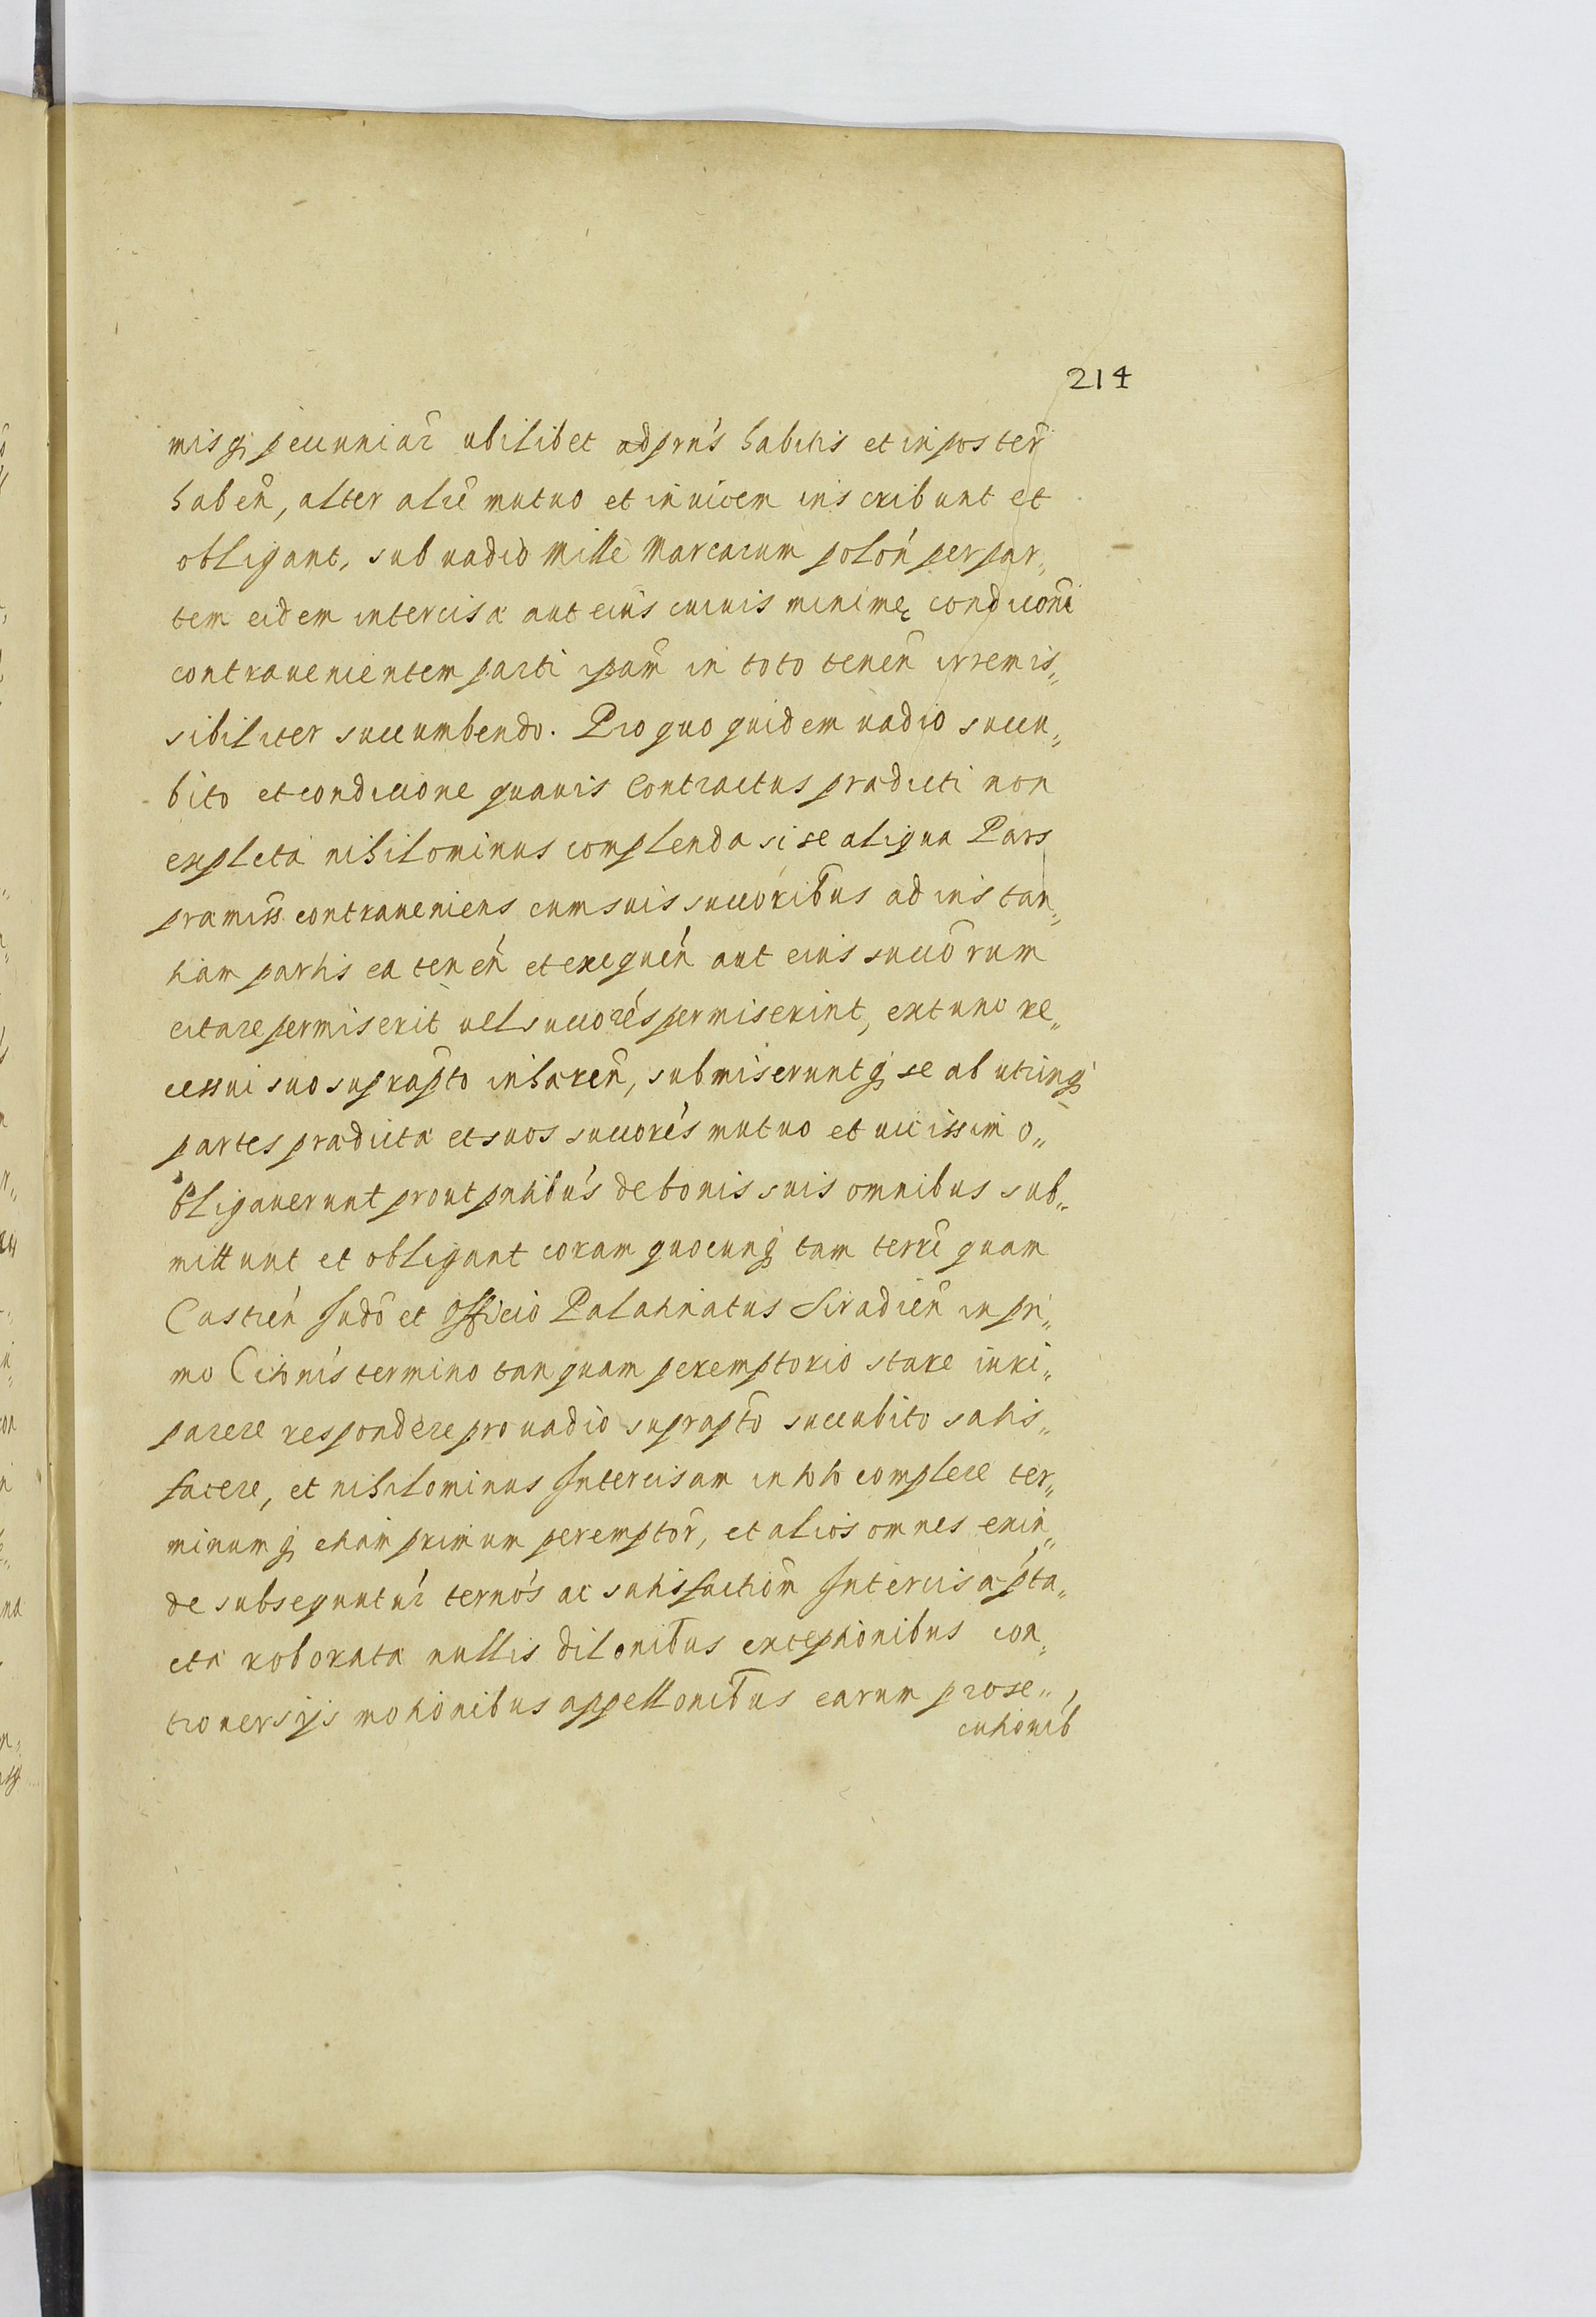 214
misq; pecuniar ubilibet ad prns habitis et in poster
haben, alter alte mutuo et inuicem inscribunt et
obligant, sub uadio Mille Marcarum polon per par„
tem eidem intercisa aut eius cuiuis minime condiconi
contrauenientem parti ipam in toto tenen irremis„
sibiliter succumbendo. Pro quo quidem uadio succu„
bito et condicione quauis Contractus pradicti non
expleta nihilominus complenda si se aliqua Pars
pramiss contraueniens cum suis succoribus ad instan„
tiam partis ea tenen et exequen aut eius succorum
citare permiserit uel succores permiserint, extunc re„
cessui suo suprapto inharen, submiserunt q; se ab utrinq;
partes pradicta et suos succores mutuo et uicissim o„
bligauerunt prout pntibus de bonis suis omnibus sub„
mittunt et obligant coram quocunq; tam terre quam
Castren Judo et Officio Palatinatus Siradien in pri„
mo Citonis termino tanquam peremptorio stare iuri„
parere respondere pro uadio suprapto succubito satis„
facere, et nihilominus Intercisam in toto complere ter„
minum q; etiam primum peremptor, et alios omnes exin„
de subsequuntur ternos ac satisfactiom Intercisa pta„
cta roborata nullis dilonibus exceptionibus con„
trouersijs motionibus appellonibus earum prose„
cutionib